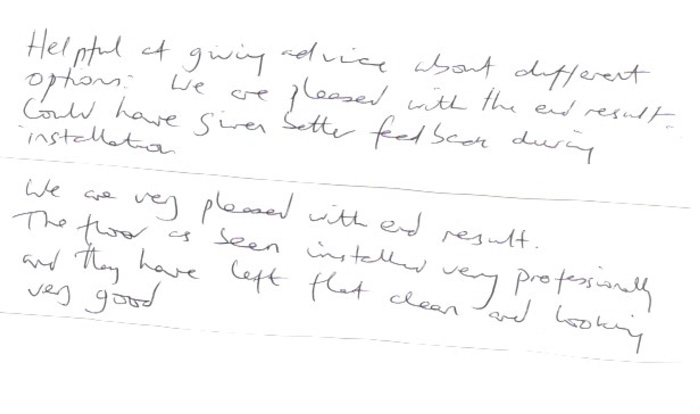 Helpful at giving advice about different
options. We are pleased with the end result.
Could have given better feedback during
installation
We are very pleased with end result.
The floor as been installed very professionally
and they have left flat clean and looking
very good